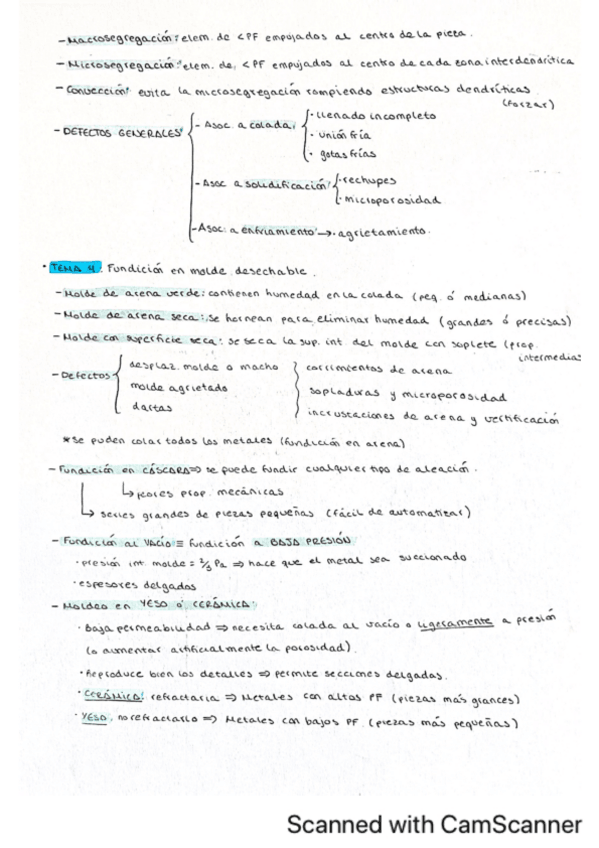 - Macrosegregación: elem. de <PF empujados al centro de la pieza.
- Microsegregación: elem. de <PF empujados al centro de cada zona interdendrítica
- Convección: evita la microsegregación rompiendo estructuras dendríticas.
(forzar)
- DEFECTOS GENERALES
- Asoc. a colada:
· llenado incompleto
· unión fría
· gotas frías
- Asoc a solidificación:
· rechupes
· microporosidad
- Asoc. a enfriamiento → · agrietamiento.
· TEMA 4. Fundición en molde desechable.
- Molde de arena verde: contienen humedad en la colada (peq. ó medianas)
- Molde de arena seca: se hornean para eliminar humedad (grandes ó precisas)
- Molde con superficie seca: se seca la sup. int del molde con soplete (prop.
intermedias
- Defectos
desplaz. molde o macho
molde agrietado
dartas
corrimientos de arena
sopladuras y microporosidad
incrustaciones de arena y vertificación
* se puden colar todos los metales (fundición en arena)
- Fundición en CÁSCARA ⇒ se puede fundir cualquier tipo de aleación.
↳ peores prop. mecánicas
↳ series grandes de piezas pequeñas (fácil de automatizar)
- Fundición al VACÍO ≡ fundición a BAJA PRESIÓN
· presión int molde = 2/3 Pa ⇒ hace que el metal sea succionado
· espesores delgados
- Moldeo en YESO ó CERÁMICA:
· Baja permeabilidad ⇒ necesita colada al vacío o ligeramente a presión
(o aumentar artificialmente la porosidad).
· Reproduce bien los detalles ⇒ permite secciones delgadas.
· CERÁMICA: refractaria ⇒ Metales con altos PF (piezas más grances)
· YESO: no refractario ⇒ Metales con bajos PF (piezas más pequeñas)
Scanned with CamScanner